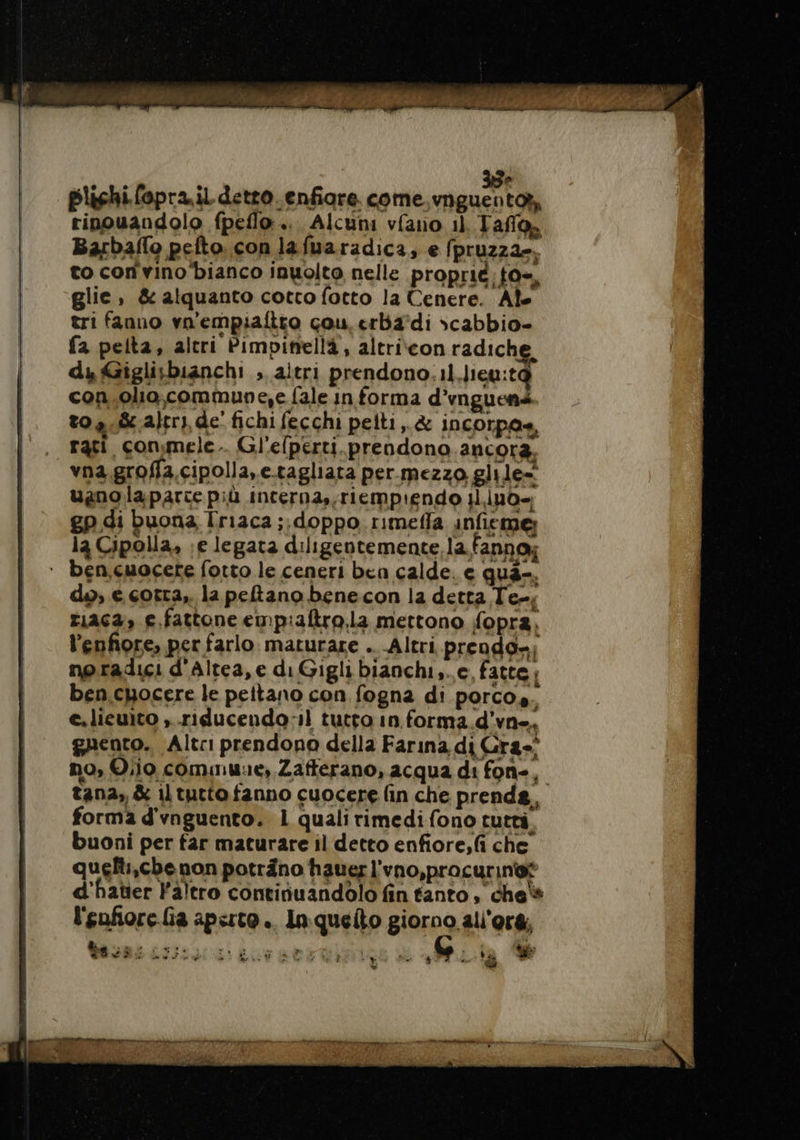 plichi ſopra, il detto enfiore come vnguento,
rinouandolo ſpeſſo. Alcuni vſano il Taſſo,
Barbaſſo peſto con la ſua radica, e ſpruzza-
to con vino bianco inuolto nelle proprie fo-
glie, & alquanto cotto ſotto la Cenere. Al-
tri fanno vn'empiaſtro cou erba di scabbio-
ſa peſta, altri Pimpinella, altri con radiche
di Gigli bianchi, altri prendono il lieuito
con olio commune, e ſale in forma d'vnguen-
to, & altri, de' fichi ſecchi peſti, & incorpo-
rati con mele. Gl'eſperti prendono ancora,
vna groſſa cipolla, e tagliata per mezzo gli le-
uano la parte più interna, riempiendo il luo-
go di buona Triaca; doppo rimeſſa inſieme
la Cipolla, e legata diligentemente la fanno
ben cuocere ſotto le ceneri ben calde, e quã-
do, e cotta, la peſtano bene con la detta Te-
riaca, e fattone empiaſtro la mettono ſopra
l'enfiore, per farlo maturare. Altri prendo-
no radici d'Altea, e di Gigli bianchi, e fatte
ben cuocere le peſtano con ſogna di porco,
e lieuito, riducendo il tutto in forma d'vn-
guento. Altri prendono della Farina di Gra-
no, Olio commune, Zafferano, acqua di fon-
tana, & il tutto fanno cuocere ſin che prenda
forma d'vnguento. I quali rimedi ſono tutti
buoni per far maturare il detto enfiore, ſi che
queſti, che non potrãno hauer l'vno, procurino
d'hauer l'altro continuandolo ſin tanto, che
l'enfiore ſia aperto. In queſto giorno all'ore,